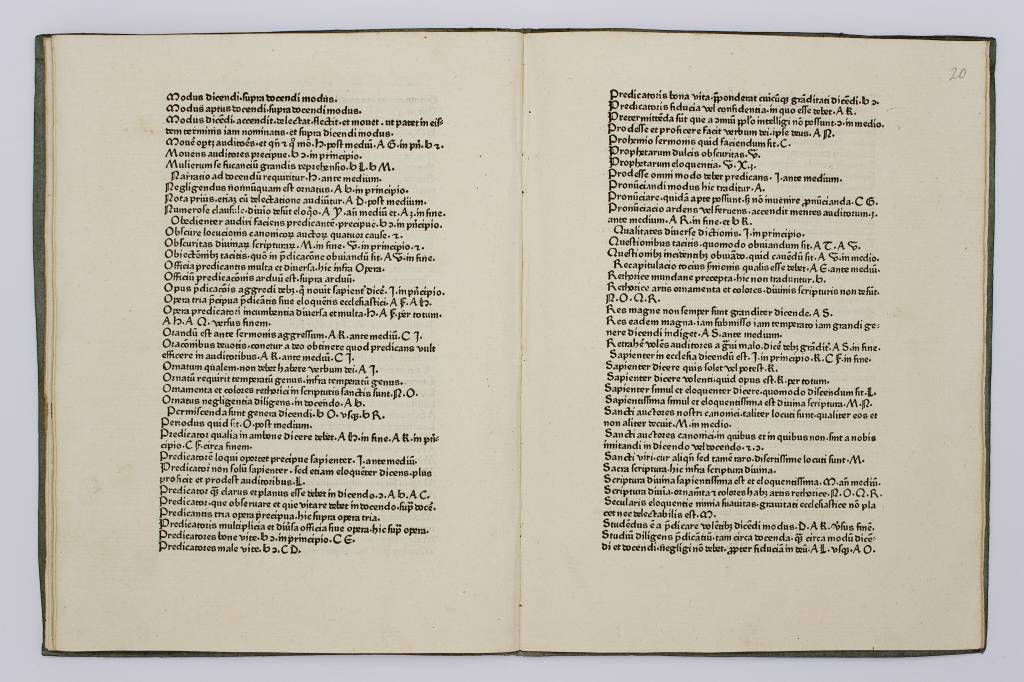 Modus dicendi·supra docendi modus.
Modus aptus docendi·supra docendi modus.
Modus dicēdi·accendit·delectat·flectit·et mouet·ut patet in eis⸗
dem terminis iam nominatis·et supra dicendi modus.
Mouē oꝑtꝫ auditoēs·et qn̄ ꝛ q̄ mō·H·post mediū·A G·in pn̄·b ꝛ.
Mouens auditores precipue·b ꝛ·in principio.
Mulierum se fucanciū grandis reprehensio·b L·b M.
Narratio ad docendū requiritur·H·ante medium.
Negligendus nonnūquam est ornatus·A b·in principio.
Nota prius·etiaꝫ cū delectatione audiūtur·A D·post medium.
Numerose clausule·diuio desūt eloq̄o·A y·an̄ mediū et·A ꝫ·in fine.
Obedienter audiri faciens predicantē·precipue·b ꝛ·in pn̄cipio.
Obscure locucionis canonicoꝝ auctoꝝ quatuor cause·ꝛ.
Obscuritas diuinaꝝ scripturaꝝ·M·in fine·S·in principio·ꝛ.
Obiectōnibꝫ tacitis·quō in p̄dicacōne obuiandū sit·A S·in fine.
Officia predicantis multa et diuersa·hic infra Opera.
Officiū predicacōnis arduū est·supra arduū.
Opus p̄dicacōis aggredi debꝫ·q̄ nouit sapient᷑ dicē·I·in pn̄cipio.
Opera tria p̄cipua p̄dicātis siue eloquētis ecclesiastici·A F·A H.
Opera predicatori incumbentia diuersa et multa·H·A F·per totum.
A H·A Q·versus finem.
Orandū est ante sermonis aggressum·A R·ante mediū·C I.
Oracōnibus deuotis·conetur a deo obtinere quod predicans vult
efficere in auditoribus·A R·ante mediū·C I.
Ornatum qualem·non debet habere verbum dei·A I.
Ornatū requirit temperatū genus·infra temperatū genus.
Ornamenta et colores rethorici in scripturis sanctis sunt·N·O.
Ornatus negligentia diligens·in docendo·A b.
Permiscenda sunt genera dicendi·b O·vsqꝫ·b R.
Periodus quid sit·O·post medium.
Predicator qualia in ambone dicere debet·A H·in fine·A R·in pn̄⸗
cipio·C F·circa finem.
Predicatorē loqui oportet precipue sapienter·I·ante mediū.
Predicator non solū sapienter·sed etiam eloquēter dicens·plus
proficit et prodest auditoribus·L.
Predicator q̄ꝫ clarus et planus esse debet in dicendo·ꝛ·A b·A C.
Predicator·que obseruare et que vitare debet in docendo·sup̄ docē.
Predicantis tria opera precipua·hic supra opera tria.
Predicatoris multiplicia et diūsa officia siue opera·hic sup̄ opera.
Predicatores bone vite·b ꝛ·in principio·C E.
Predicatores male vite·b ꝛ·C D.
20
Predicatoris bona vita·p̄ponderat cuicūqꝫ grāditati dicēdi·b ꝛ.
Predicatoris fiducia vel confidentia·in quo esse debet·A R.
Pretermittēda sūt que a ꝛmuni pp̄lo intelligi nō possunt·ꝛ·in medio.
Prodesse et proficere facit verbum dei·ipse deus·A N.
Prohemio sermonis quid faciendum sit·C.
Prophetarum dulcis obscuritas·S.
Prophetarum eloquentia·S·X·ꝫ.
Prodesse omni modo debet predicans·I·ante medium.
Pronūciandi modus hic traditur·A.
Pronūciare·quidā apte possunt·sꝫ nō inuenire p̄nūcianda·C G.
Pronūciacio ardens vel feruens·accendit mentes auditorum·ꝫ·
ante medium·A R·in fine·et b R.
Qualitates diuerse dictionis·I·in principio.
Questionibus tacitis·quomodo obuiandum sit·A T·A S.
Questionibꝫ incidentibꝫ obuiādo·quid cauēdū sit·A S·in medio.
Recapitulacio tocius sermonis qualis esse debet·A E·ante mediū.
Rethorice mundane precepta·hic non traduntur·b.
Rethorice artis ornamenta et colores·diuinis scripturis non desūt.
N·O·Q·R.
Res magne non semper sunt granditer dicende·A S.
Res eadem magna·iam submisso iam temperato iam grandi ge⸗
nere dicendi indiget·A S·ante medium.
Retrahē volēs auditores a ḡui malo·dicē debꝫ grādit᷑·A S·in fine.
Sapienter in ecclesia dicendū est·I·in principio·K·C F·in fine.
Sapienter dicere quis solet vel potest·K.
Sapienter dicere volenti·quid opus est·K·per totum.
Sapienter simul et eloquenter dicere·quomodo discendum sit·L.
Sapientissima simul et eloquentissima est diuina scriptura·M·N.
Sancti auctores nostri canonici·taliter locuti sunt·qualiter eos et
non aliter decuit·M·in medio.
Sancti auctores canonici·in quibus et in quibus non·sint a nobis
imitandi in dicendo vel docendo·ꝛ·ꝛ.
Sancti viri·cur aliqn̄ sed tamē raro·disertissime locuti sunt·M.
Sacra scriptura·hic infra scriptura diuina.
Scriptura diuina sapientissima est et eloquentissima·M·an̄ mediū.
Scriptura diuīa·ornam̄ta ꝛ colores habꝫ artis rethorice·N·O·Q·R.
Secularis eloquentie nimia suauitas·grauitati ecclesiastice nō pla
cet nec delectabilis est·M.
Studēdus ē a p̄dicare volētibꝫ dicēdi modus·D·A R·v̄sus finē.
Studiū diligens p̄dicātiū·tam circa docenda·q̄ꝫ circa modū dicē⸗
di et docendi·n̄egligi nō debet·ꝓpter fiduciā in deū·A L·vsqꝫ·A O.